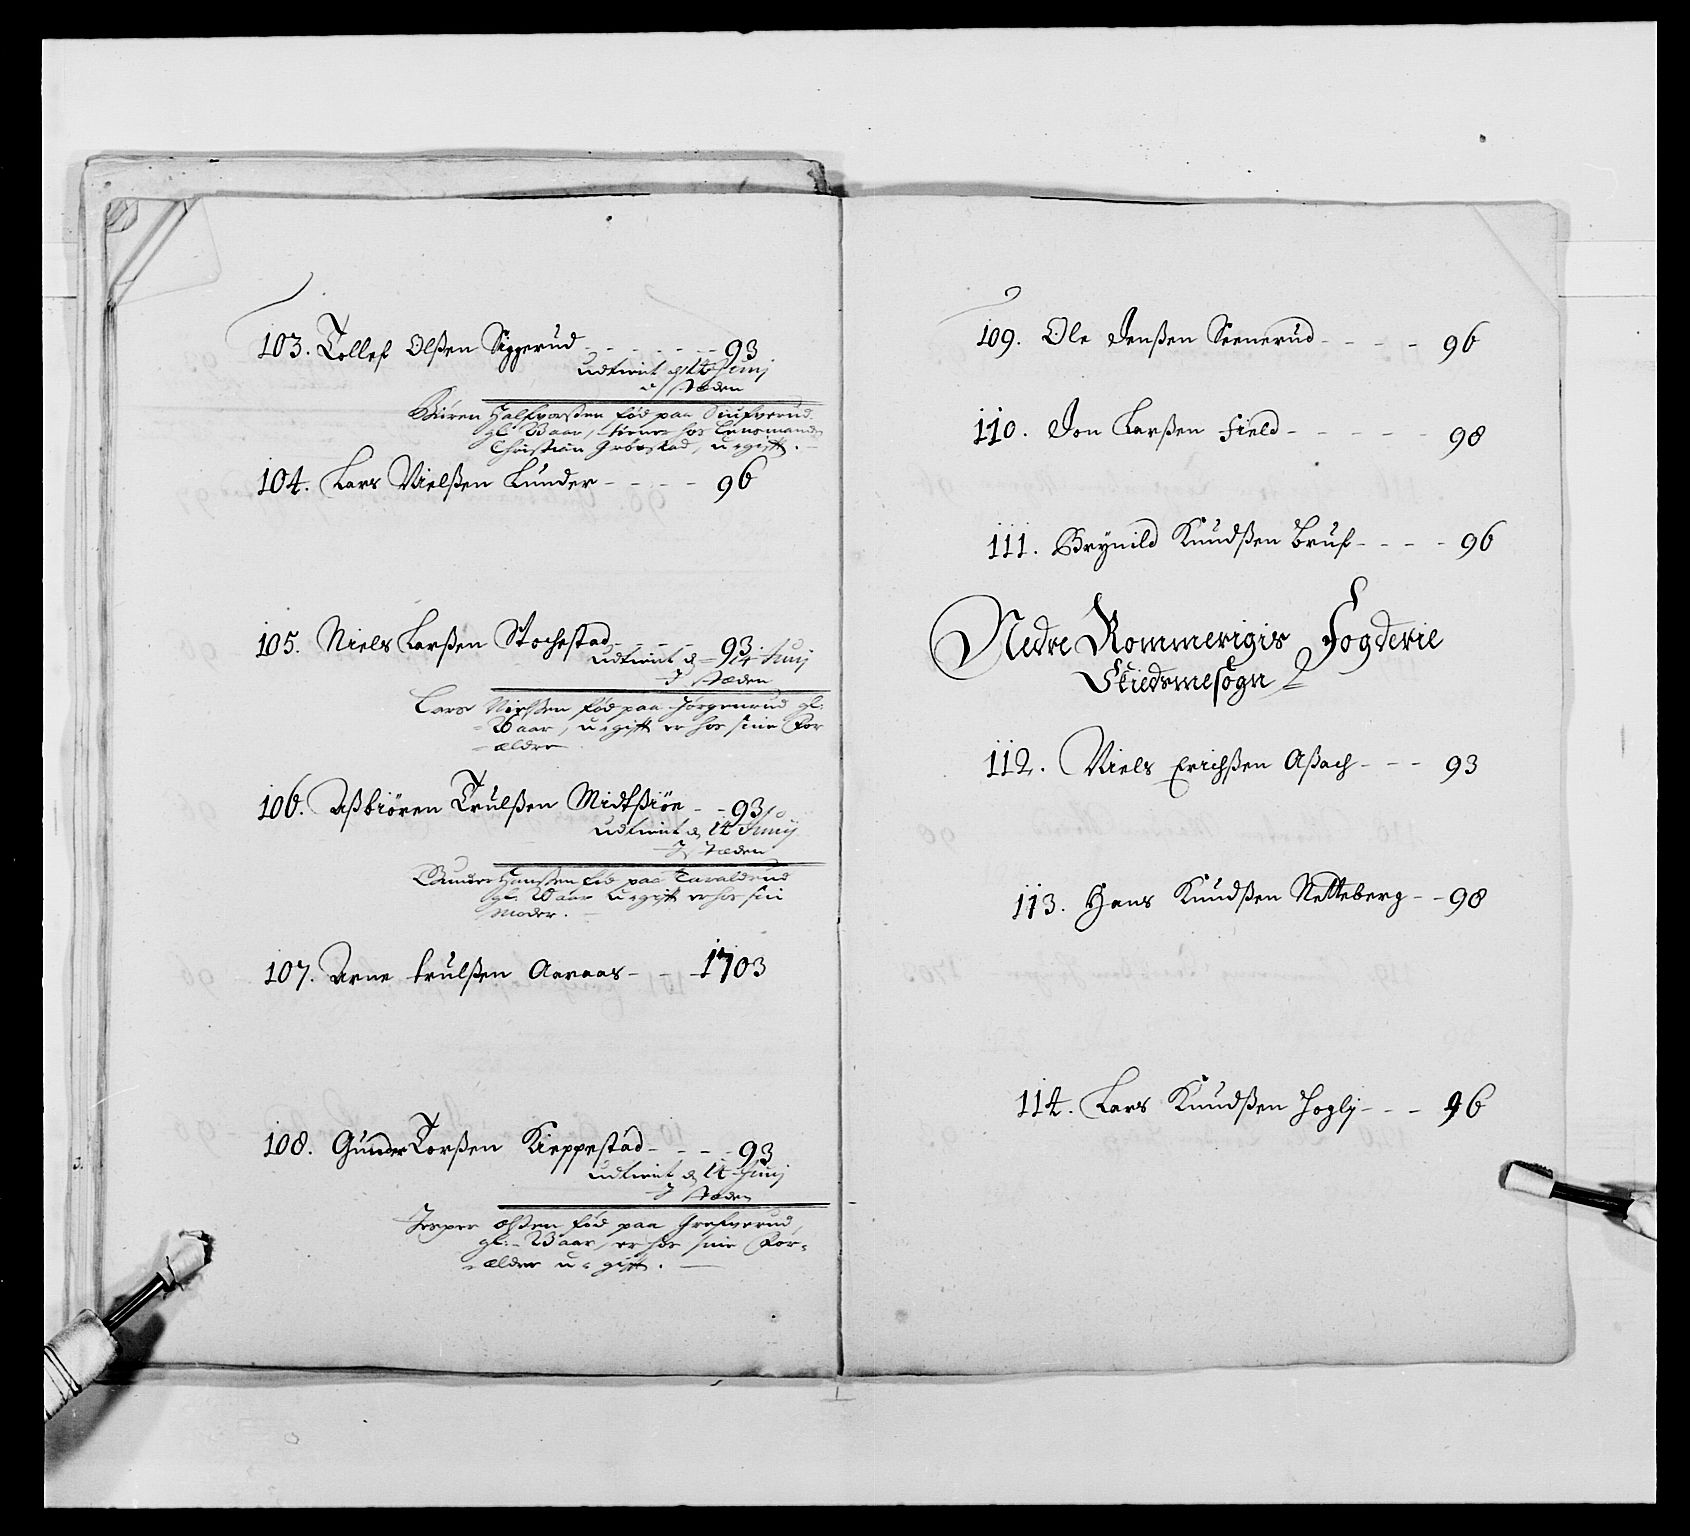 103. Tollef Olßen Siggerud - - - - - - 93
udtient d 14 Junij
i Steden
Biören Halfvorßen fød paa
gl. Waar, tiener hos Lensmanden
Christian Gröestad, u-gift.
104. Lars Nielßen Lunder - - - - - 96
105. Niels Larßen Stochestad - - - - 93
udtient d 14 Junij
I Steden
Lars Nielßen fød paa Jörgenrud gl:
Waar, u-gift er hos sine For
ældre
106. Aßbiören Trulßen Midtsiöe - - 93
udtient d 14 Junij
I Steden
Gunder Hanßen fød paa Taraldrud
gl. Waar u-gift er hos sin
Moder.
107. Arne trulßen Aaraas - - - 1703
108. Gunder Torßen Kieppestad - - - - 93
udtient d 14 Junij
I Steden
Jesper Olßen fød paa Grefverud,
gl: Waar, er hos sine For-
ældre u-gift.
109. Ole Jenßen Seenerud - - - - 96
110. Jon Larßen Field - - - - - - 98
111. Brynild Knudßen Bruf - - - - 96
Nedre Rommerigis Fogderie
Skiedsmesogn
112. Niels Erichßen Aßach - - - 93
113. Hans Knudßen Netteberg - - 98
114. Lars Knudßen Hogly - - - 96